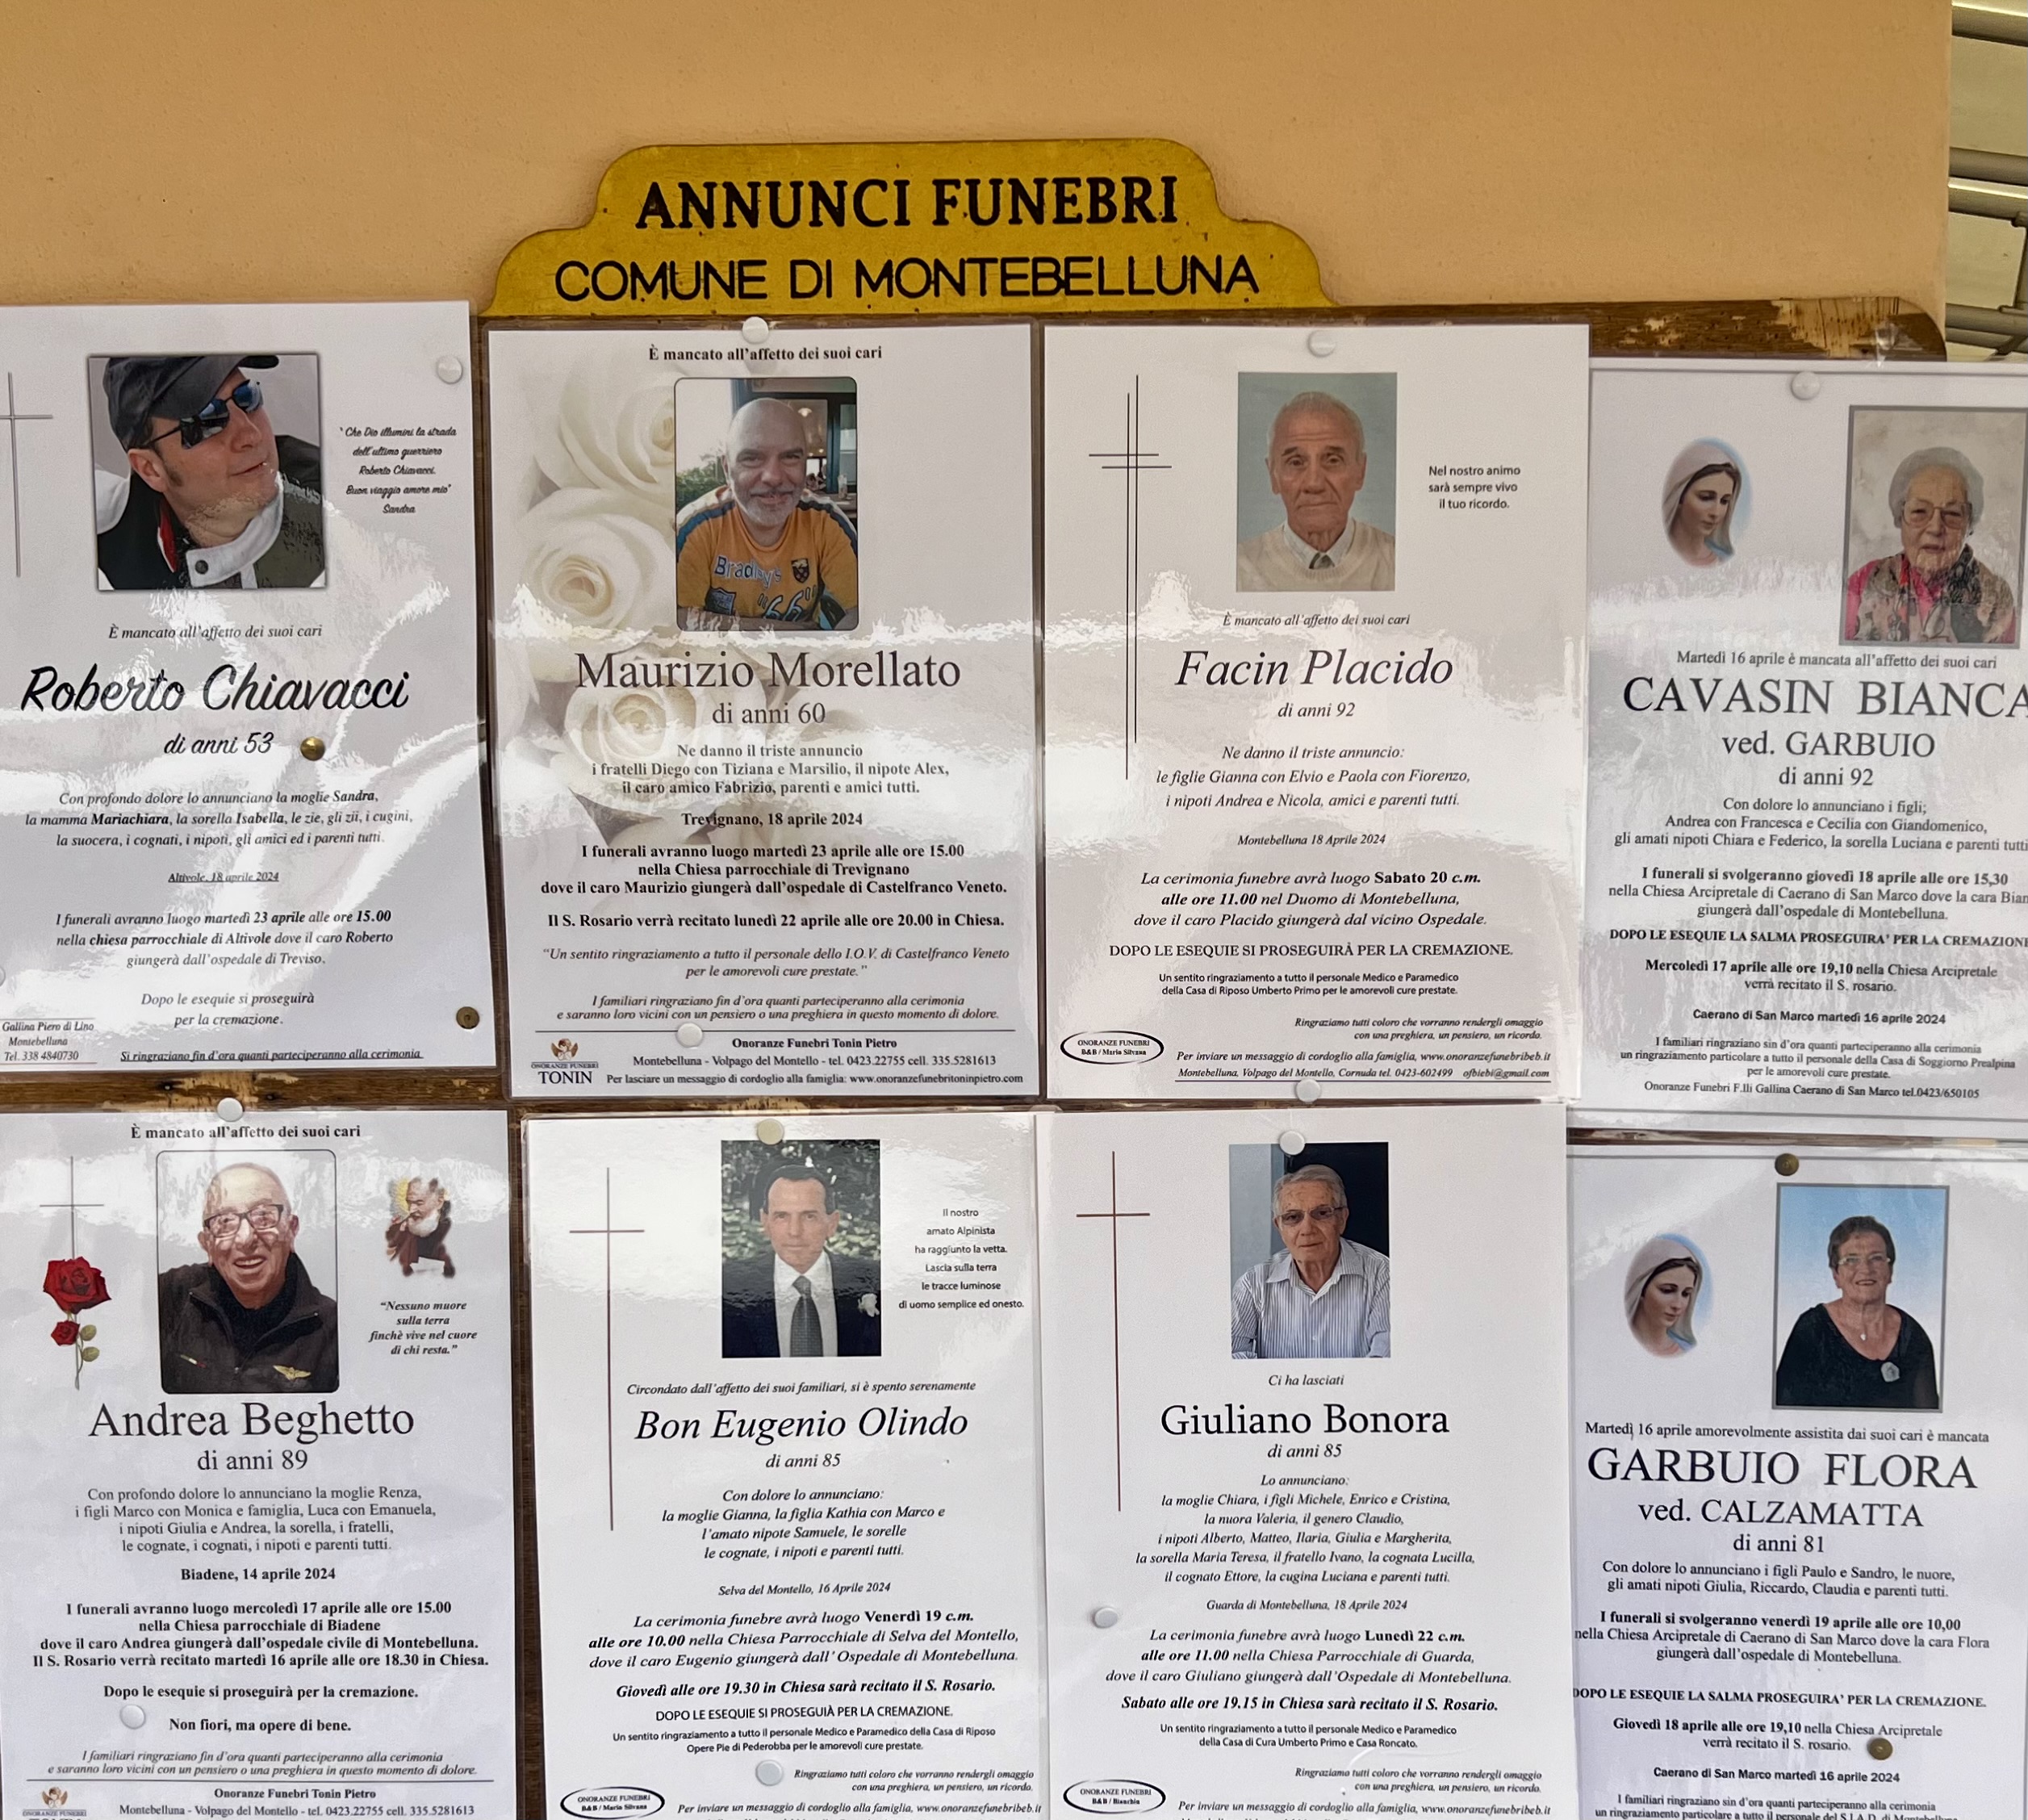 ANNUNCI FUNEBRI
COMUNE DI MONTEBELLUNA
"Che Dio illumini la strada
dell'ultimo guerriero
Roberto Chiavacci.
Buon viaggio amore mio"
Sandra
È mancato all'affetto dei suoi cari
Roberto Chiavacci
di anni 53
Con profondo dolore lo annunciano la moglie Sandra,
la mamma Mariachiara, la sorella Isabella, le zie, gli zii, i cugini,
la suocera, i cognati, i nipoti, gli amici ed i parenti tutti.
Altivole, 18 aprile 2024
I funerali avranno luogo martedì 23 aprile alle ore 15.00
nella chiesa parrocchiale di Altivole dove il caro Roberto
giungerà dall'ospedale di Treviso.
Dopo le esequie si proseguirà
per la cremazione.
Gallina Piero di Lino
Montebelluna
Tel. 338 4840730
Si ringraziano fin d'ora quanti parteciperanno alla cerimonia
È mancato all'affetto dei suoi cari
Bradley's
66
Maurizio Morellato
di anni 60
Ne danno il triste annuncio
i fratelli Diego con Tiziana e Marsilio, il nipote Alex,
il caro amico Fabrizio, parenti e amici tutti.
Trevignano, 18 aprile 2024
I funerali avranno luogo martedì 23 aprile alle ore 15.00
nella Chiesa parrocchiale di Trevignano
dove il caro Maurizio giungerà dall'ospedale di Castelfranco Veneto.
Il S. Rosario verrà recitato lunedì 22 aprile alle ore 20.00 in Chiesa.
"Un sentito ringraziamento a tutto il personale dello I.O.V. di Castelfranco Veneto
per le amorevoli cure prestate."
I familiari ringraziano fin d'ora quanti parteciperanno alla cerimonia
e saranno loro vicini con un pensiero o una preghiera in questo momento di dolore.
ONORANZE FUNEBRI
TONIN
Onoranze Funebri Tonin Pietro
Montebelluna - Volpago del Montello - tel. 0423.22755 cell. 335.5281613
Per lasciare un messaggio di cordoglio alla famiglia: www.onoranzefunebritoninpietro.com
Nel nostro animo
sarà sempre vivo
il tuo ricordo.
È mancato all'affetto dei suoi cari
Facin Placido
di anni 92
Ne danno il triste annuncio:
le figlie Gianna con Elvio e Paola con Fiorenzo,
i nipoti Andrea e Nicola, amici e parenti tutti.
Montebelluna 18 Aprile 2024
La cerimonia funebre avrà luogo Sabato 20 c.m.
alle ore 11.00 nel Duomo di Montebelluna,
dove il caro Placido giungerà dal vicino Ospedale.
DOPO LE ESEQUIE SI PROSEGUIRÀ PER LA CREMAZIONE.
Un sentito ringraziamento a tutto il personale Medico e Paramedico
della Casa di Riposo Umberto Primo per le amorevoli cure prestate.
Ringraziamo tutti coloro che vorranno rendergli omaggio
con una preghiera, un pensiero, un ricordo.
ONORANZE FUNEBRI
B&B / Maria Silvana
Per inviare un messaggio di cordoglio alla famiglia, www.onoranzefunebribeb.it
Montebelluna, Volpago del Montello, Cornuda tel. 0423-602499 ofbiebi@gmail.com
Martedì 16 aprile è mancata all'affetto dei suoi cari
CAVASIN BIANCA
ved. GARBUIO
di anni 92
Con dolore lo annunciano i figli;
Andrea con Francesca e Cecilia con Giandomenico,
gli amati nipoti Chiara e Federico, la sorella Luciana e parenti tutti
I funerali si svolgeranno giovedì 18 aprile alle ore 15,30
nella Chiesa Arcipretale di Caerano di San Marco dove la cara Bian
giungerà dall'ospedale di Montebelluna.
DOPO LE ESEQUIE LA SALMA PROSEGUIRA' PER LA CREMAZIONE
Mercoledì 17 aprile alle ore 19,10 nella Chiesa Arcipretale
verrà recitato il S. rosario.
Caerano di San Marco martedì 16 aprile 2024
I familiari ringraziano sin d'ora quanti parteciperanno alla cerimonia
un ringraziamento particolare a tutto il personale della Casa di Soggiorno Prealpina
per le amorevoli cure prestate.
Onoranze Funebri F.lli Gallina Caerano di San Marco tel.0423/650105
È mancato all'affetto dei suoi cari
"Nessuno muore
sulla terra
finchè vive nel cuore
di chi resta."
Andrea Beghetto
di anni 89
Con profondo dolore lo annunciano la moglie Renza,
i figli Marco con Monica e famiglia, Luca con Emanuela,
i nipoti Giulia e Andrea, la sorella, i fratelli,
le cognate, i cognati, i nipoti e parenti tutti.
Biadene, 14 aprile 2024
I funerali avranno luogo mercoledì 17 aprile alle ore 15.00
nella Chiesa parrocchiale di Biadene
dove il caro Andrea giungerà dall'ospedale civile di Montebelluna.
Il S. Rosario verrà recitato martedì 16 aprile alle ore 18.30 in Chiesa.
Dopo le esequie si proseguirà per la cremazione.
Non fiori, ma opere di bene.
I familiari ringraziano fin d'ora quanti parteciperanno alla cerimonia
e saranno loro vicini con un pensiero o una preghiera in questo momento di dolore.
ONORANZE FUNEBRI
Onoranze Funebri Tonin Pietro
Montebelluna - Volpago del Montello - tel. 0423.22755 cell. 335.5281613
Il nostro
amato Alpinista
ha raggiunto la vetta.
Lascia sulla terra
le tracce luminose
di uomo semplice ed onesto.
Circondato dall'affetto dei suoi familiari, si è spento serenamente
Bon Eugenio Olindo
di anni 85
Con dolore lo annunciano:
la moglie Gianna, la figlia Kathia con Marco e
l'amato nipote Samuele, le sorelle
le cognate, i nipoti e parenti tutti.
Selva del Montello, 16 Aprile 2024
La cerimonia funebre avrà luogo Venerdì 19 c.m.
alle ore 10.00 nella Chiesa Parrocchiale di Selva del Montello,
dove il caro Eugenio giungerà dall' Ospedale di Montebelluna.
Giovedì alle ore 19.30 in Chiesa sarà recitato il S. Rosario.
DOPO LE ESEQUIE SI PROSEGUIÀ PER LA CREMAZIONE.
Un sentito ringraziamento a tutto il personale Medico e Paramedico della Casa di Riposo
Opere Pie di Pederobba per le amorevoli cure prestate.
Ringraziamo tutti coloro che vorranno rendergli omaggio
con una preghiera, un pensiero, un ricordo.
ONORANZE FUNEBRI
B&B / Maria Silvana
Per inviare un messaggio di cordoglio alla famiglia, www.onoranzefunebribeb.it
Ci ha lasciati
Giuliano Bonora
di anni 85
Lo annunciano:
la moglie Chiara, i figli Michele, Enrico e Cristina,
la nuora Valeria, il genero Claudio,
i nipoti Alberto, Matteo, Ilaria, Giulia e Margherita,
la sorella Maria Teresa, il fratello Ivano, la cognata Lucilla,
il cognato Ettore, la cugina Luciana e parenti tutti.
Guarda di Montebelluna, 18 Aprile 2024
La cerimonia funebre avrà luogo Lunedì 22 c.m.
alle ore 11.00 nella Chiesa Parrocchiale di Guarda,
dove il caro Giuliano giungerà dall'Ospedale di Montebelluna.
Sabato alle ore 19.15 in Chiesa sarà recitato il S. Rosario.
Un sentito ringraziamento a tutto il personale Medico e Paramedico
della Casa di Cura Umberto Primo e Casa Roncato.
Ringraziamo tutti coloro che vorranno rendergli omaggio
con una preghiera, un pensiero, un ricordo.
ONORANZE FUNEBRI
B&B / Bianchin
Per inviare un messaggio di cordoglio alla famiglia, www.onoranzefunebribeb.it
Martedì 16 aprile amorevolmente assistita dai suoi cari è mancata
GARBUIO FLORA
ved. CALZAMATTA
di anni 81
Con dolore lo annunciano i figli Paulo e Sandro, le nuore,
gli amati nipoti Giulia, Riccardo, Claudia e parenti tutti.
I funerali si svolgeranno venerdì 19 aprile alle ore 10,00
nella Chiesa Arcipretale di Caerano di San Marco dove la cara Flora
giungerà dall'ospedale di Montebelluna.
DOPO LE ESEQUIE LA SALMA PROSEGUIRA' PER LA CREMAZIONE.
Giovedì 18 aprile alle ore 19,10 nella Chiesa Arcipretale
verrà recitato il S. rosario.
Caerano di San Marco martedì 16 aprile 2024
I familiari ringraziano sin d'ora quanti parteciperanno alla cerimonia
un ringraziamento particolare a tutto il personale del S.I.A.D. di